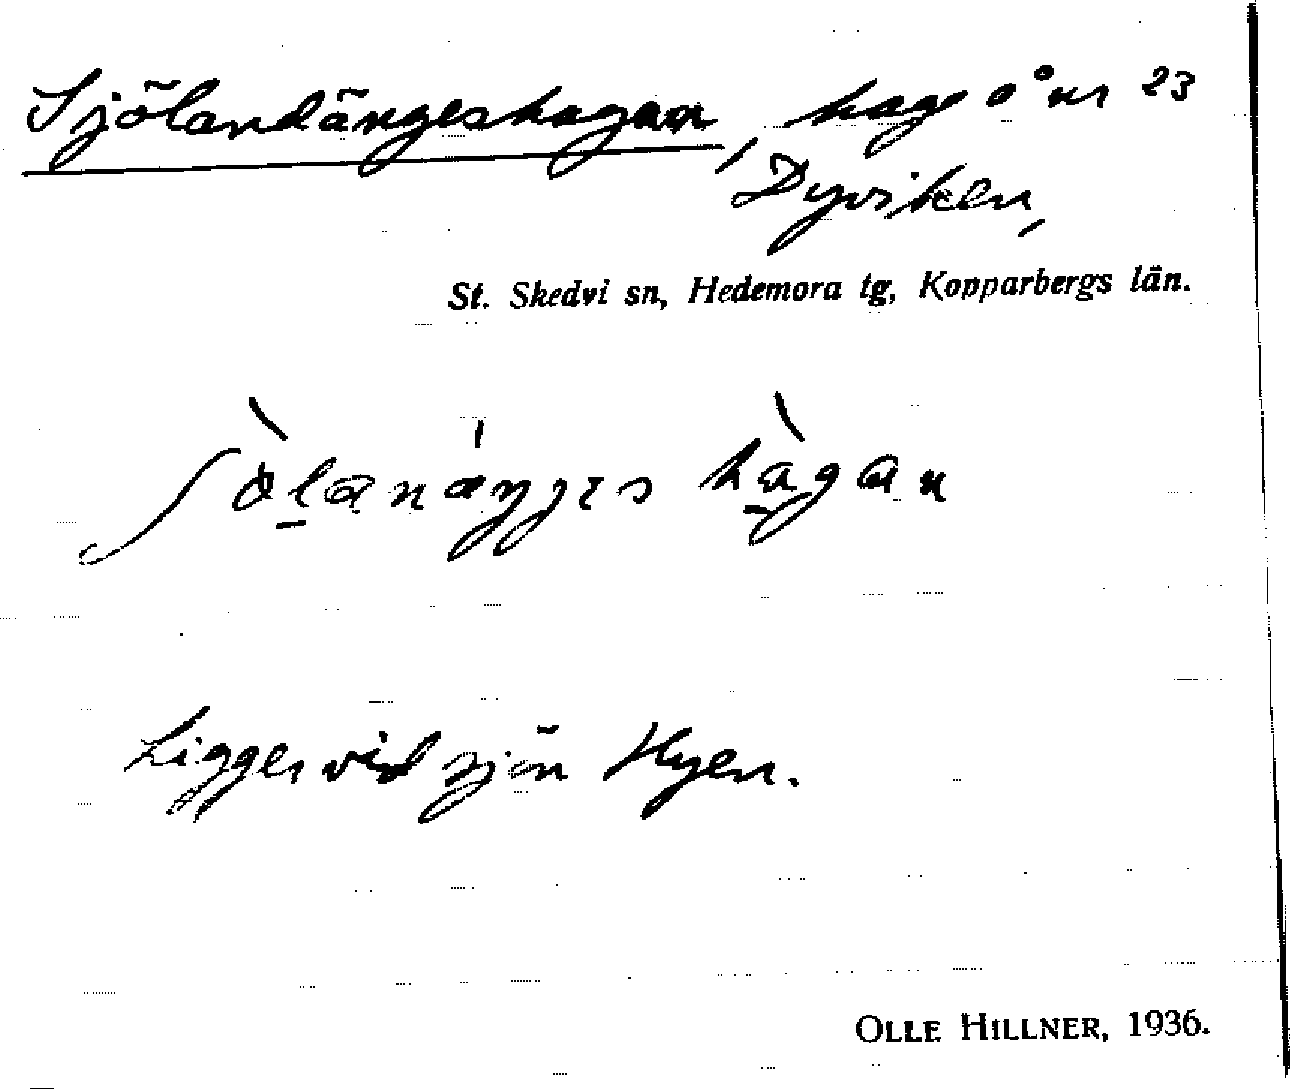 Sjölandängeshagan, hage å nr 23
Dyviken,
St. Skedvi sn, Hedemora tg, Kopparbergs län.
Ligger vid sjön Hyen.
OLLE HILLNER, 1936.